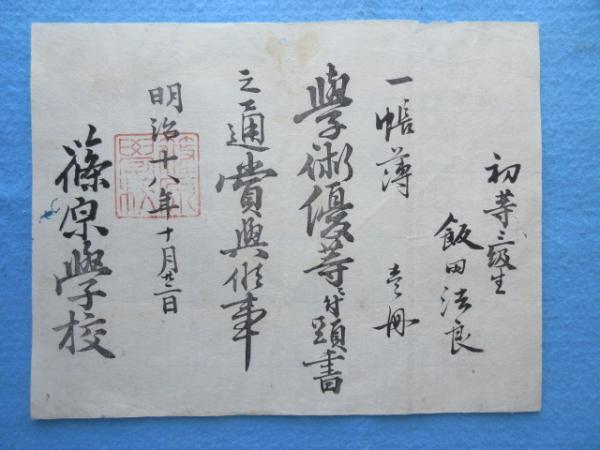 初等三級生
飯田法良
一帳簿 壱冊
學術優等ニ付頭書
之通賞與候事
明治十八年十月廿二日
篠原學校